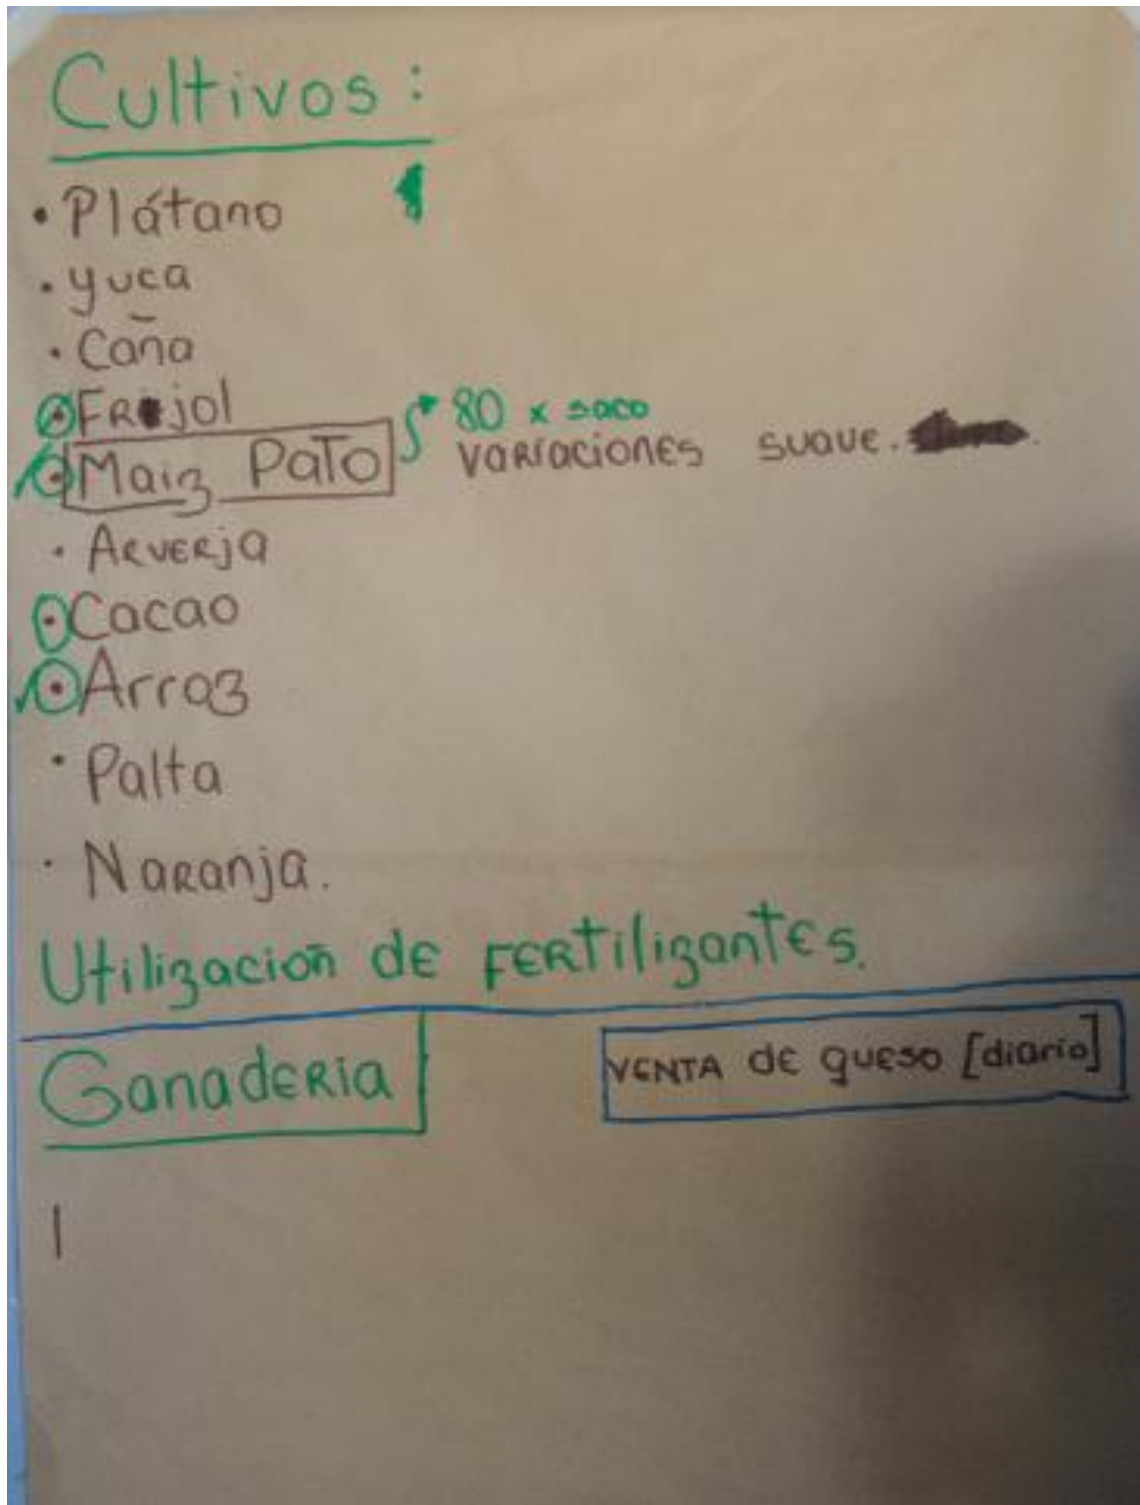 Cultivos:
• Plátano
• yuca
• Caña
• FRijol
• Maiz PaTo
80 x saco
vaRiacionEs suave.
• ARvERja
• Cacao
• Arroz
• Palta
• NaRanja.
Utilización dE FERtilizantEs.
GanadERia
VENTA dE quEso [diario]